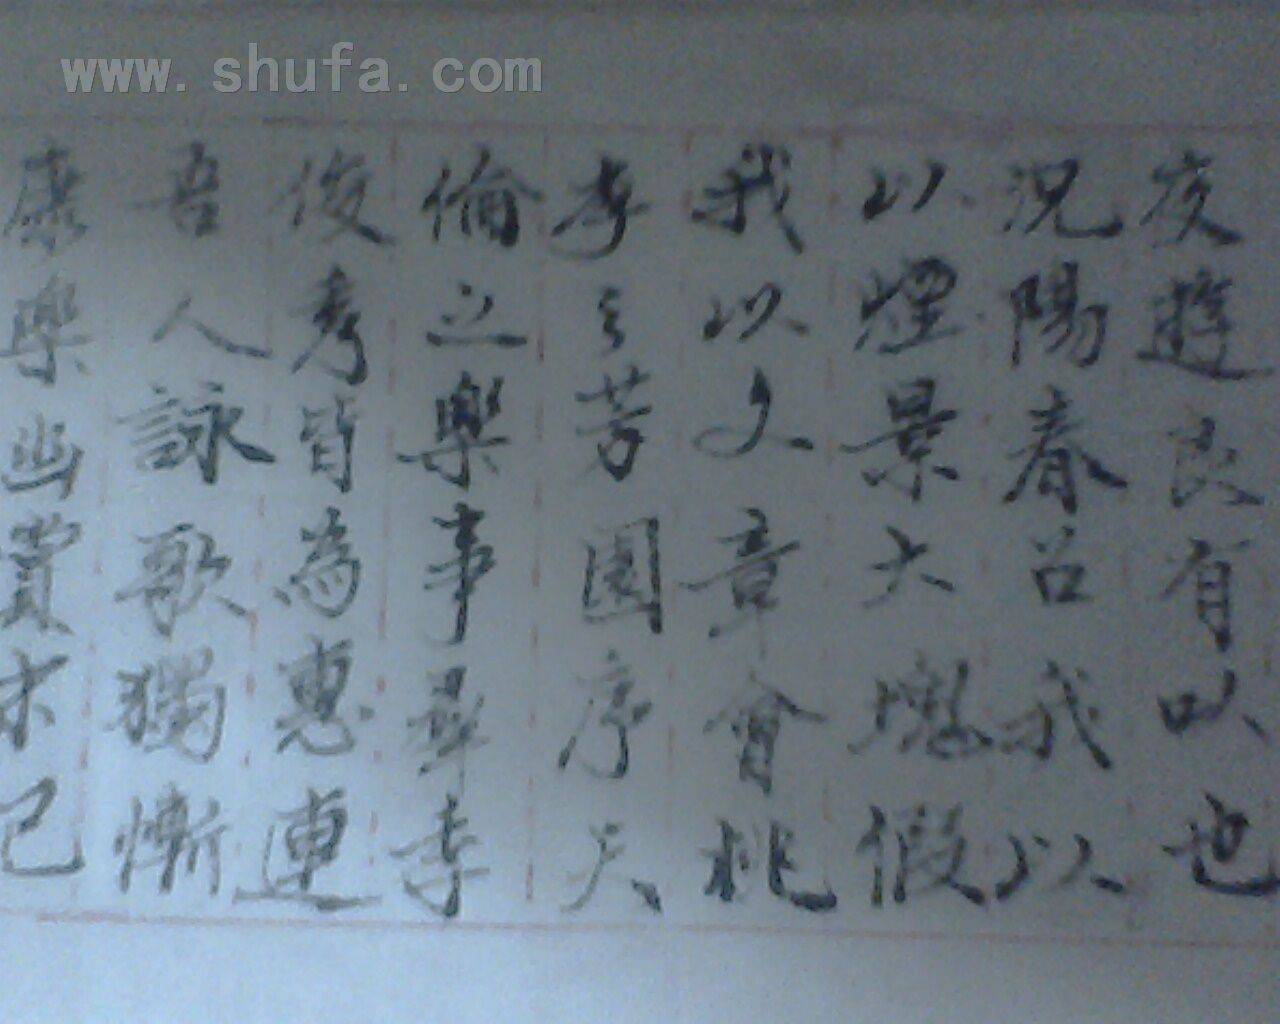 www.shufa.com
夜遊良有以也
況陽春召我以
以煙景大塊假
我以文章會桃
李之芳園序天
倫之樂事羣季
俊秀皆為惠連
吾人詠歌獨慚
康樂幽賞未已